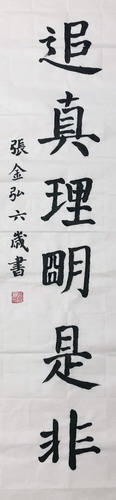 追真理明是非
張金弘六歲書